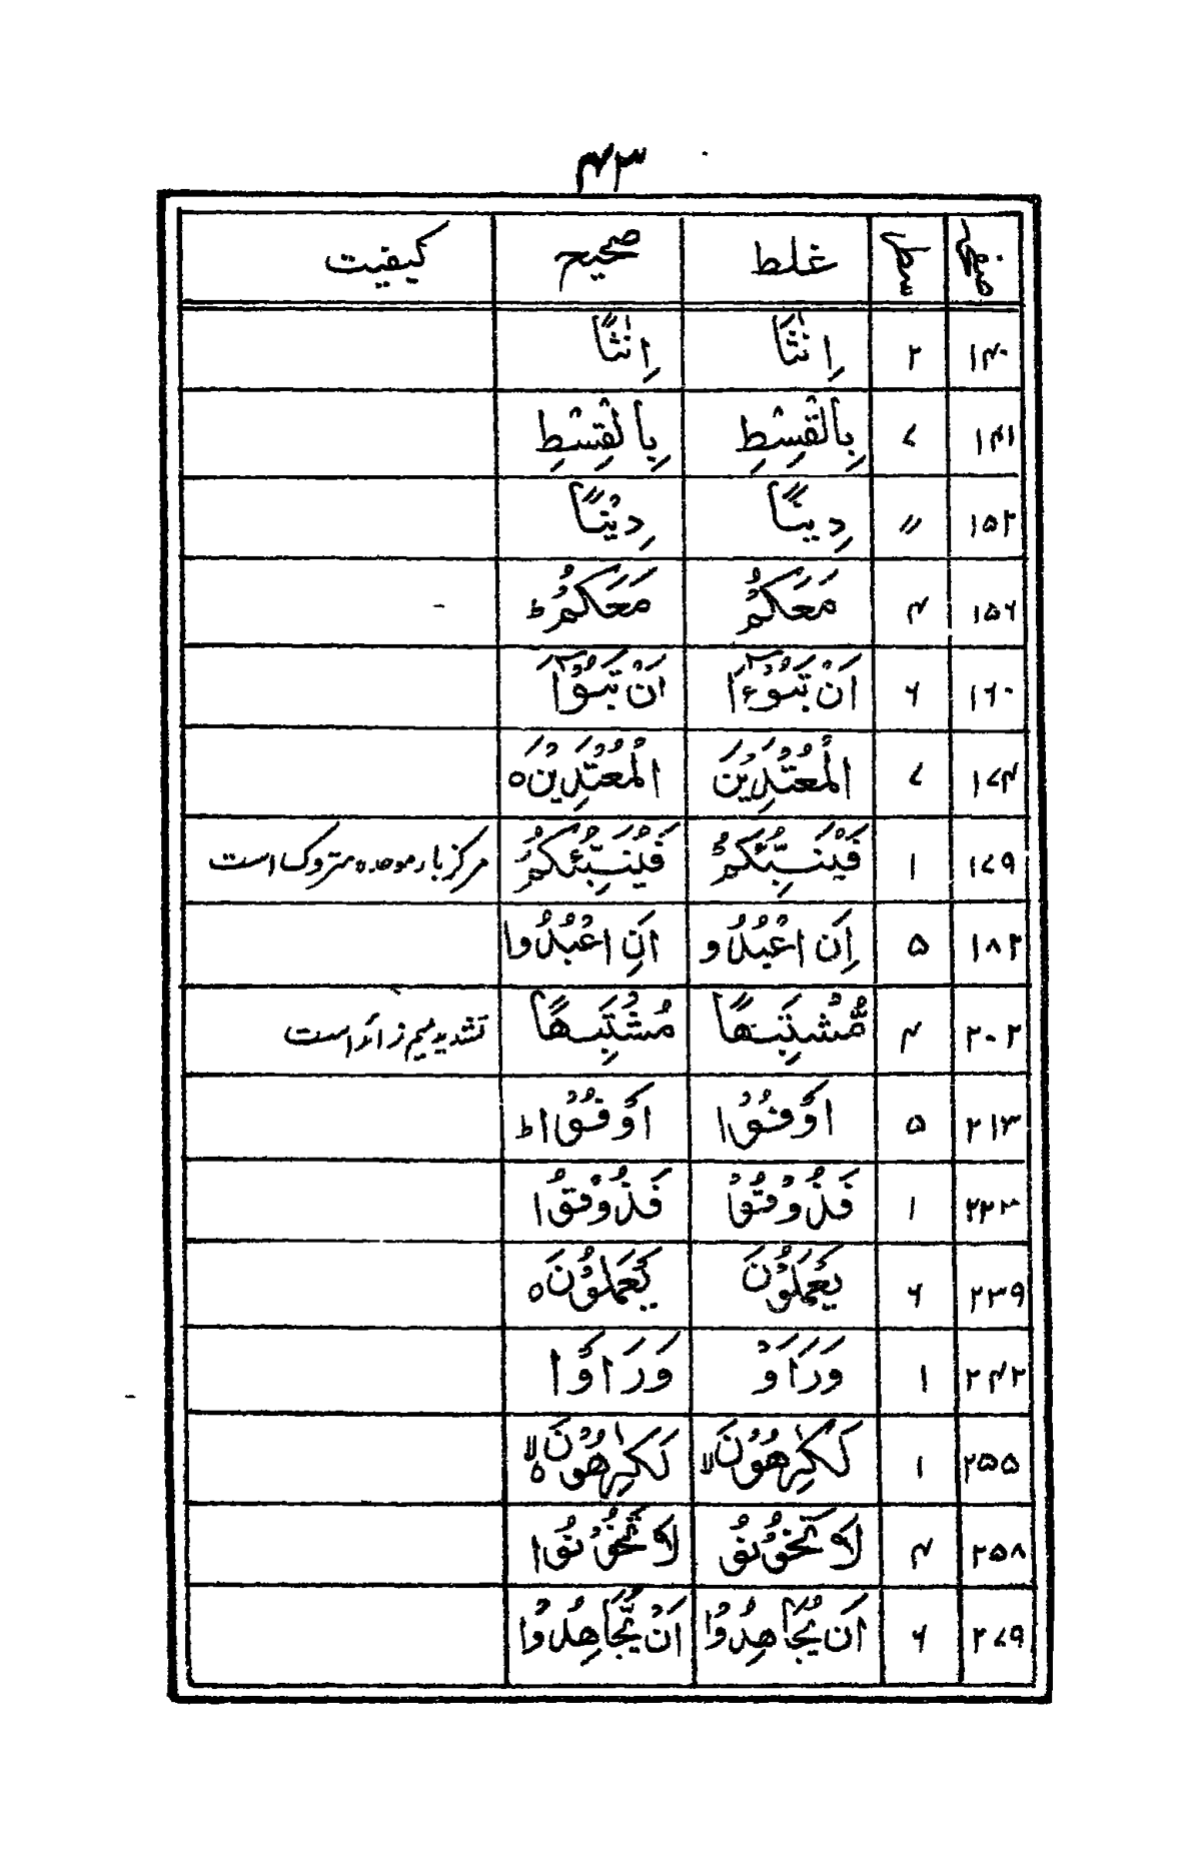 ۴۳
صفحہ سطر غلط صحیح کیفیت
۱۴۰ ۲ اِنٰثَا اِنٰثًا
۱۴۱ ۷ بِالْقَسِْطِ بِالْقِسْطِ
۱۵۲ 〃 دِینًّا دِیْنًا
۱۵۶ ۴ مَعَكُمْ مَعَكُمْ ؕ
۱۶۰ ۶ اَنْ تَبُوْٓءَاۤ اَنْ تَبُوْٓاَ
۱۷۴ ۷ الْمُعْتَدِیْنَ الْمُعْتَدِیْنَ ○
۱۷۹ ۱ فَیُنَبِّئُكُمْ فَیُنَبِّئُكُمْ مرکز باء موحدہ متروک است
۱۸۲ ۵ اِنَ اعْبُدُو اَنِ اعْبُدُوا
۲۰۲ ۴ مُّشْتَبِهًا مُشْتَبِهًا تشدید میم زائد است
۲۱۳ ۵ اَوْفُوْا اَوْفُوْا ؕ
۲۲۳ ۱ فَذُوْقُوْ فَذُوْقُوْا
۲۳۹ ۶ یَعْمَلُوْنَ یَعْمَلُوْنَ ○
۲۴۲ ۱ وَرَاَوْ وَرَاَوْا
۲۵۵ ۱ لَكٰرِهُوْنَ لا لَكٰرِهُوْنَ ○ لا
۲۵۸ ۴ لَا تَخُوْنُوْ لَا تَخُوْنُوْا
۲۷۹ ۶ اَنْ یُجَاهِدُوْا اَنْ یُّجَاهِدُوْا